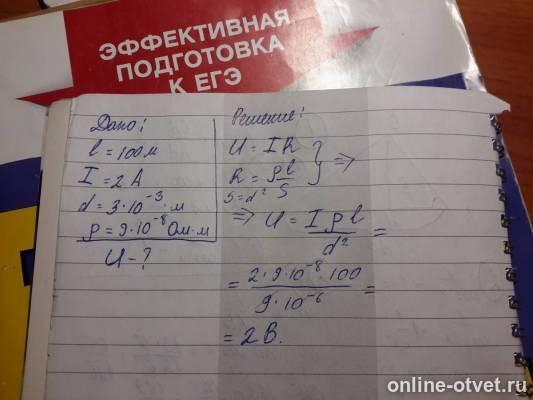 ЭФФЕКТИВНАЯ
ПОДГОТОВКА
К ЕГЭ
Дано:
l = 100 м
I = 2 А
d = 3·10⁻³ м
ρ = 9·10⁻⁸ Ом·м
U - ?
Решение:
U = IR
R = ρl/S } =>
S = d²
=> U = Iρl/d² =
= 2·9·10⁻⁸·100/9·10⁻⁶ =
= 2В.
online-otvet.ru